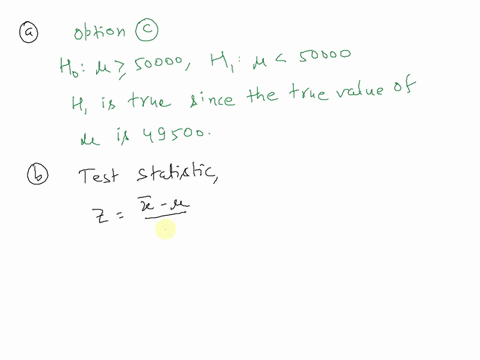 ⓐ Option ⓒ
H₀: μ ≥ 50000, H₁: μ < 50000
H₁ is true since the true value of
μ is 49500.
ⓑ Test Statistic,
z = x̄ - μ